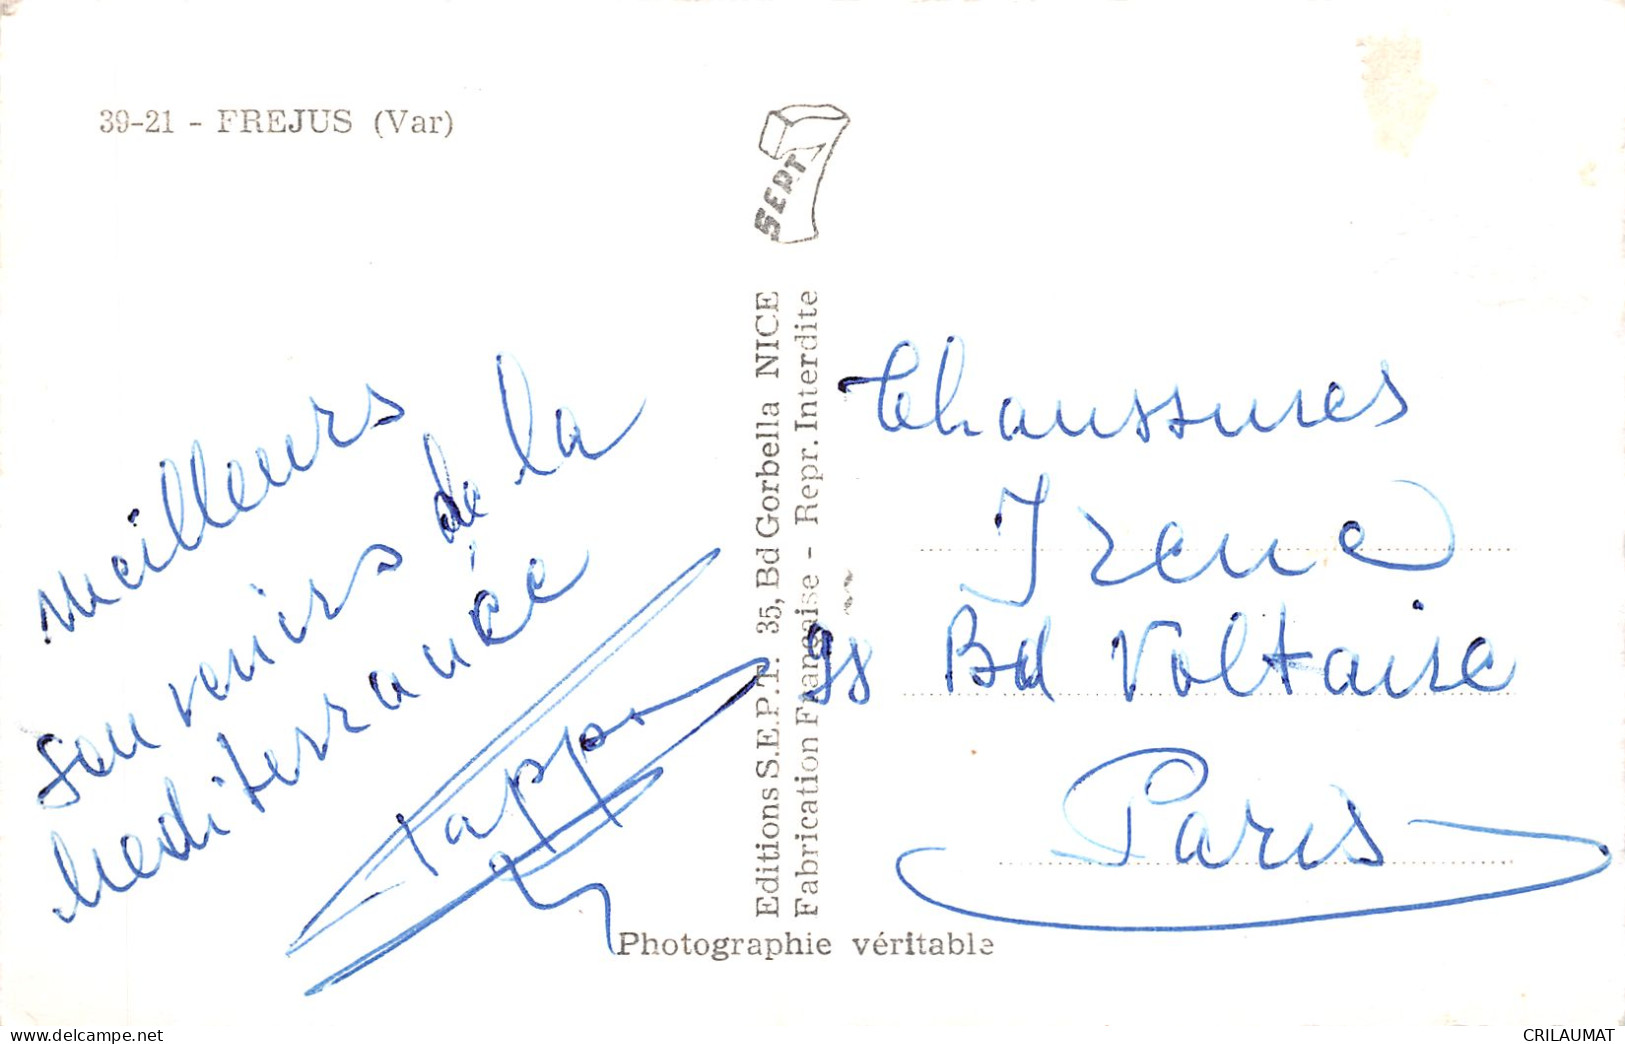 39-21 - FREJUS (Var)
SEPT
Meilleurs
souvenirs de la
Mediterranée
Editions S.E.P.T. 35, Bd Gorbella NICE
Fabrication Française - Repr. Interdite
Photographie véritable
Chaussures
Irene
Bd Voltaire
Paris
www.delcampe.net
CRILAUMAT